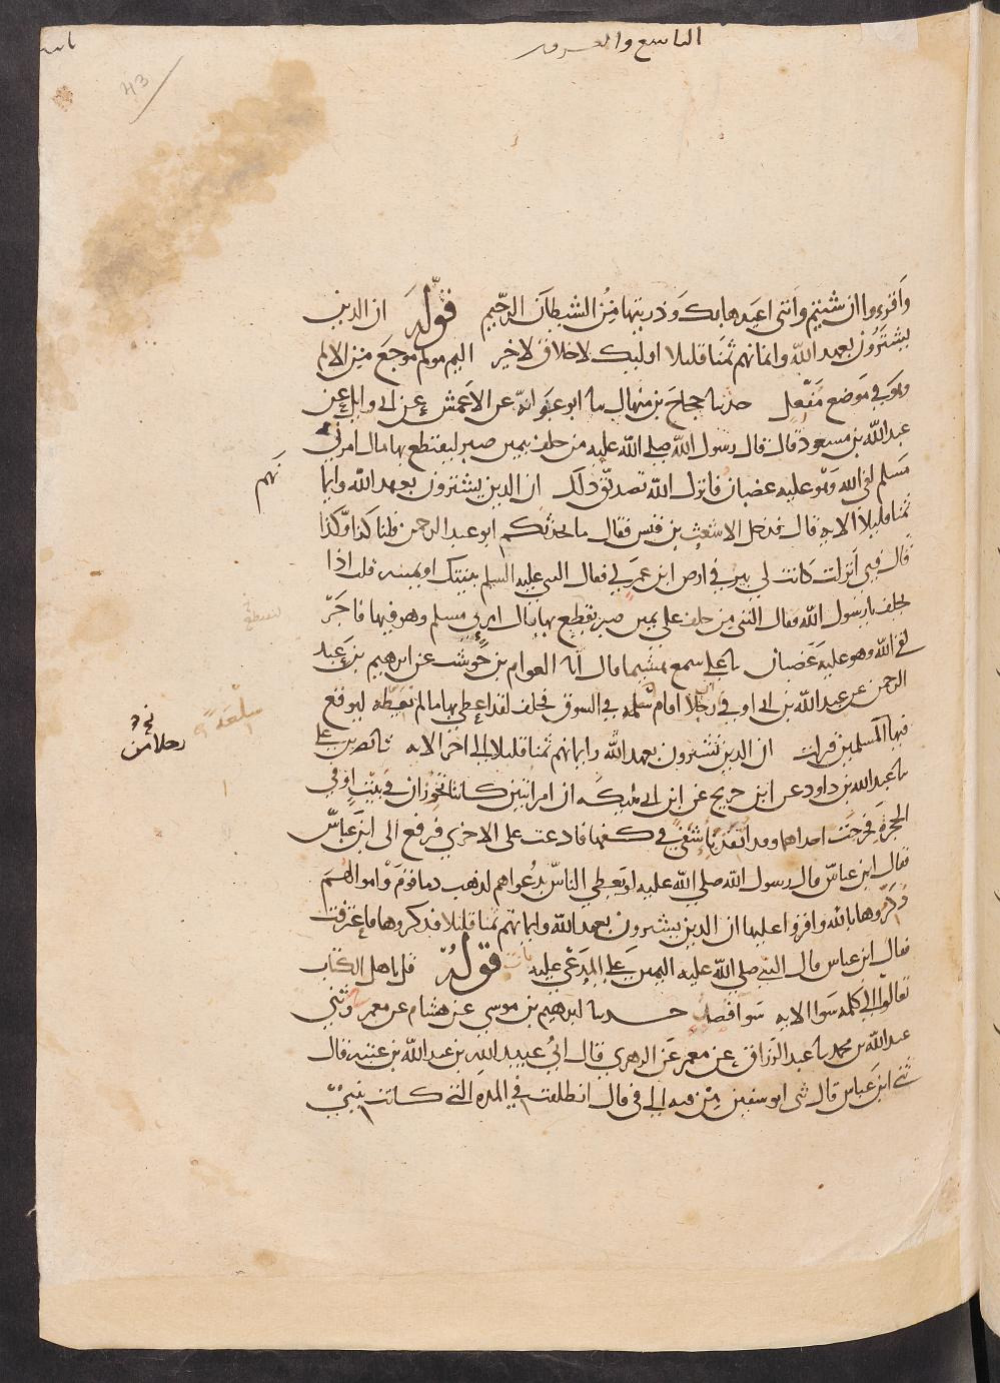 التاسع والعشرون
43
واقروا ان شئتم وانى اعيذها بك وذريتها من الشيطان الرجيم قوله ان الذين
يشترون بعهد الله وايمانهم ثمنا قليلا اوليك لا خلاق لا خير اليم مولم موجع من الالم
وهو في موضع مفعل حدثنا حجاج بن منهال نا ابو عوانة عن الاعمش عن ابي وايل عن
عبد الله بن مسعود قال قال رسول الله صلى الله عليه من حلف يمين صبر ليقتطع بها مال امرئ
مسلم لقي الله وهو عليه غضبان فانزل الله تصديق ذلك ان الذين يشترون بعهد الله وايما
نهم
ثمنا قليلا الاية قال فدخل الاشعث بن قيس فقال ما يحدثكم ابو عبد الرحمن قلنا كذا وكذا
قال في انزلت كانت لي بير في ارض ابن عم لي فقال النبي عليه السلم بينتك او يمينه قلت اذا
يحلف يا رسول الله فقال النبي من حلف على يمين صبر يقطع بها مال امرئ مسلم وهو فيها فاجر
لقي الله وهو عليه غضبان نا علي سمع هشيما قال انا العوام بن حوشب عن ابرهيم بن عبد
الرحمن عن عبد الله بن ابي اوفى رجلا اقام سلعة في السوق فحلف لقد اعطي بها ما لم يعطه ليوقع
فيها المسلمين فنزلت ان الذين يشترون بعهد الله وايمانهم ثمنا قليلا الى اخر الاية نا نصر بن علي
رجلا من
نا عبد الله بن داود عن ابن جريج عن ابن ابي مليكة ان امراتين كانتا تخرزان في بيت او في
الحجرة فخرجت احداهما وقد انفذ باشفى في كفها فادعت على الاخرى فرفع الى ابن عباس
فقال ابن عباس قال رسول الله صلى الله عليه لو يعطى الناس بدعواهم لذهب دما قوم واموالهم
ذكروها بالله واقروا عليها ان الذين يشترون بعهد الله وايمانهم ثمنا قليلا فذكروها فاعترفت
فقال ابن عباس قال النبي صلى الله عليه اليمين على المدعى عليه باب قوله قل ياهل الكتاب
تعالوا الى كلمة سوا الاية سوا قصد حدثنا ابرهيم بن موسى عن هشام عن معمر وثني
عبد الله بن محمد نا عبد الرزاق عن معمر عن الزهري قال اني عبيد الله بن عبد الله بن عتبة قال
ثني ابن عباس قال ثني ابو سفين من فيه الى في قال انطلقت في المدة التي كانت بيني